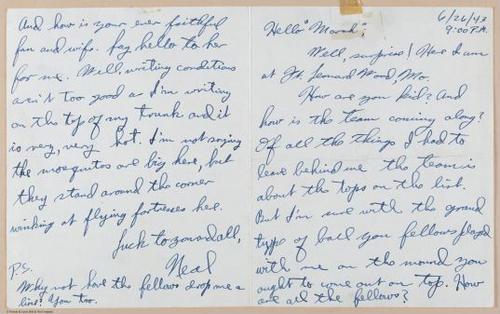 6/26/43
9:00 P.M.
Hello "Marsh",
Well, surprise! Here I am
at Ft. Leonard Wood, Mo.
How are you kid? And
how is the team coming along?
Of all the things I had to
leave behind me the team is
about the tops on the list.
But I'm sure with the grand
type of ball you fellows played
with me on the mound you
ought to come out on top. How
are all the fellows?
And how is your ever faithful
fan and wife. Say hello to her
for me. Well, writing conditions
aren't too good as I'm writing
on the top of my trunk and it
is very, very hot. I'm not saying
the mosquitos are big here, but
they stand around the corner
winking at flying fortresses here.
Luck to you and all,
Neal
P.S.
Why not have the fellows drop me a
line? You too.